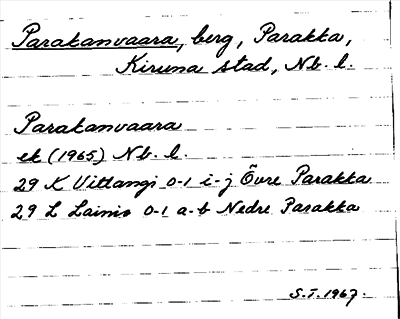 Parakanvaara, berg, Parakka,
Kiruna stad, Nb. l.
Parakanvaara
ek (1965) Nb. l.
29 K Vittangi 0-1 i-j Övre Parakka
29 L Lainio 0-1 a-b Nedre Parakka
S.T. 1967.